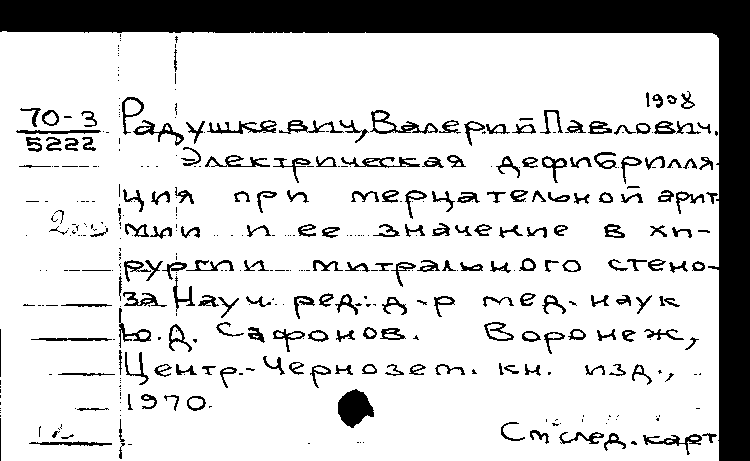 1908
70-3
5222
Радушкевич, Валерий Павлович.
Электрическая дефибрилля-
ция при мерцательной арит-
мии и ее значение в хи-
рургии митрального стено-
за Науч. ред.: д-р мед. наук
Ю.Д. Сафонов. Воронеж,
Центр.-Чернозем. кн. изд.,
1970.
См след. карт